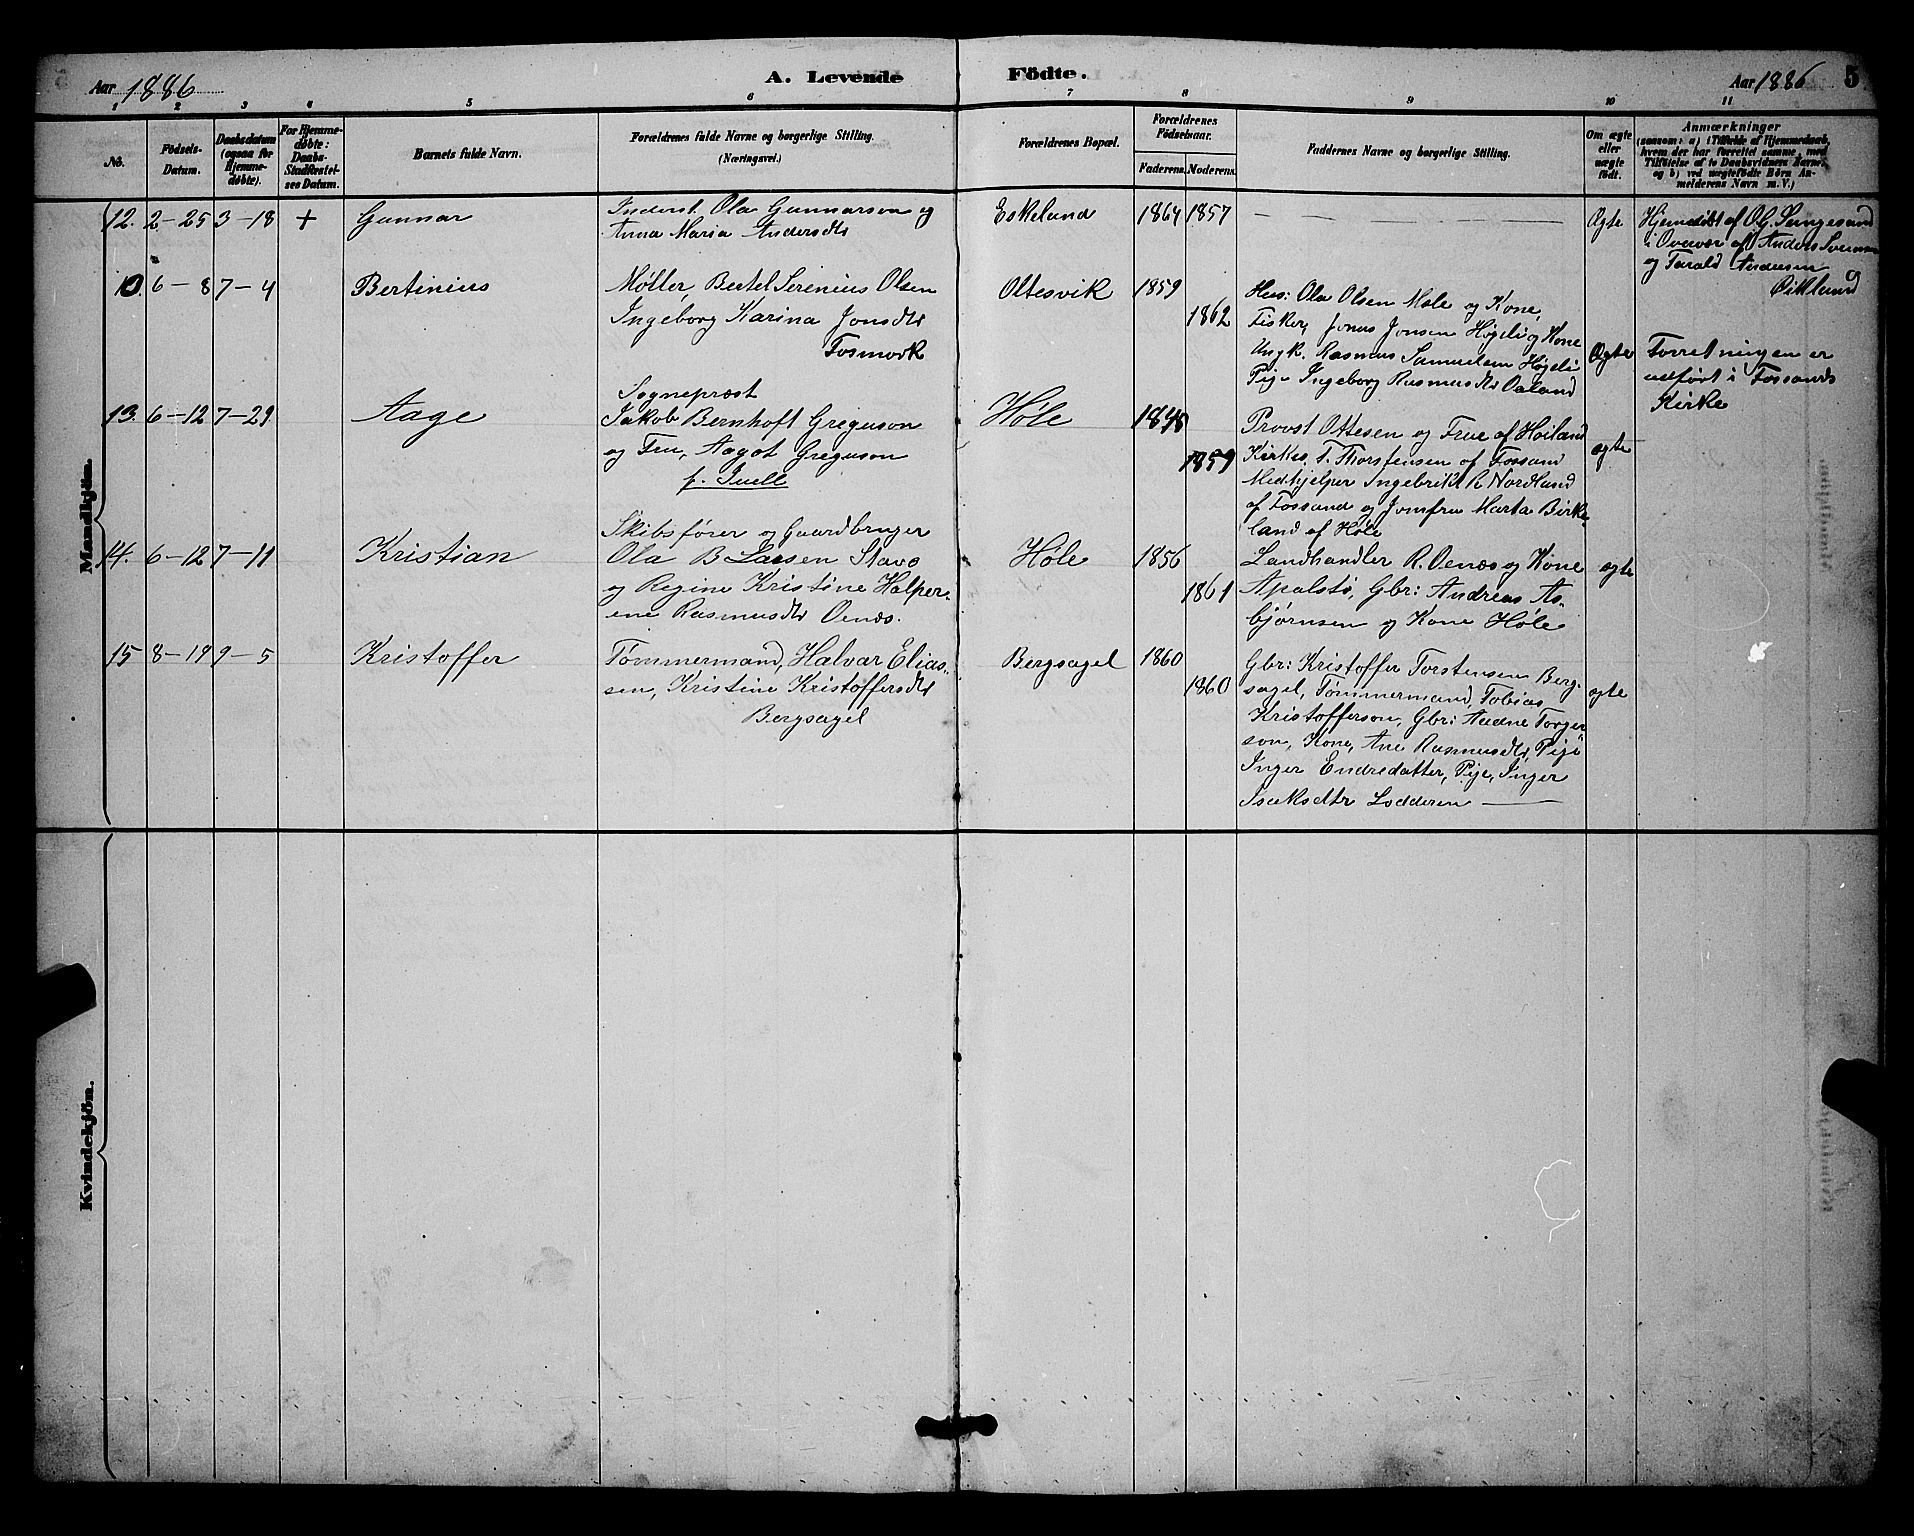 Aar 1886
A. Levende Födte.
Aar 1886 5
1 2 3 4 5 6 7 8 9 10 11
No.
Födsels-
Datum.
Daabsdatum
(ogsaa for
Hjemme-
døbte).
For Hjemme-
døbte:
Daabs-
Stadfæstel-
ses Datum.
Barnets fulde Navn.
Forældrenes fulde Navne og borgerlige Stilling.
(Næringsvei.)
Forældrenes Bopæl.
Forældrenes
Födselsaar.
Faderens. Moderens.
Faddernes Navne og borgerlige Stilling.
Om ægte
eller
uægte
födt.
Anmærkninger
(saasom: a) i Tilfælde af Hjemmedaab,
hvem der har forrettet samme, med
Tilføielse af to Daabsvidners Navne,
og b) ved uægtefödte Börn An-
melderens Navn m. V.)
Mandkjön.
12. 2-25 3-18 + Gunnar
Inderst. Ola Gunnarson og
Anna Maria Andersdtr
Eskeland 1864 1857
Ægte
Hjemdöbt af O. G. Lungesand
i Overvær af Anders Svensen
og Tarald Andersen
Eikland
10. 6-8 7-4 Bertinius
Møller, Bertel Serenius Olsen
Ingeborg Karina Jonsdtr
Fosmork
Oltesvik 1859
1862
Hus: Ola Olsen Mæle og Kone,
Fisker, Jonas Jonsen Högeli og Kone
Ungk. Rasmus Samuelsen Högeli
Pige Ingeborg Rasmusdtr Oaland
Ægte
Forretningen er
udført i Fossands
Kirke
13. 6-12 7-29 Aage
Sognepræst
Jakob Bernhoft Greguson
og Fru, Aagot Greguson
f. Juell
Høle 1848
1859
Provst Ottesen og Frue af Høiland
Kirkes. T. Thorstensen af Fossand
Medhjelper Ingebrikt R Nordland
af Fossand og Jomfru Marta Birke-
land af Høle
ægte
14. 6-12 7-11 Kristian
Skibsfører og Gaardbruger
Ola B Larsen Stavø
og Regine Kristine Halper-
ene Rasmusdtr Oenæs.
Høle 1856
1861
Landhandler R. Oenæs og Kone
Apalstø, Gbr: Andreas As-
bjørnsen og Kone Høle
ægte
15 8-19 9-5 Kristoffer
Tømmermand, Halvar Elias-
sen, Kristine Kristoffersdtr
Bergsagel
Bergsagel 1860
1860
Gbr: Kristoffer Torstensen Berg-
sagel, Tømmermand, Tobias
Kristofferson, Gbr: Audne Torger-
son, Kone, Ane Rasmusdtr, Pige
Inger Endredatter, Pige, Inger
Isaksdtr Lodderen
ægte
Kvindekjön.